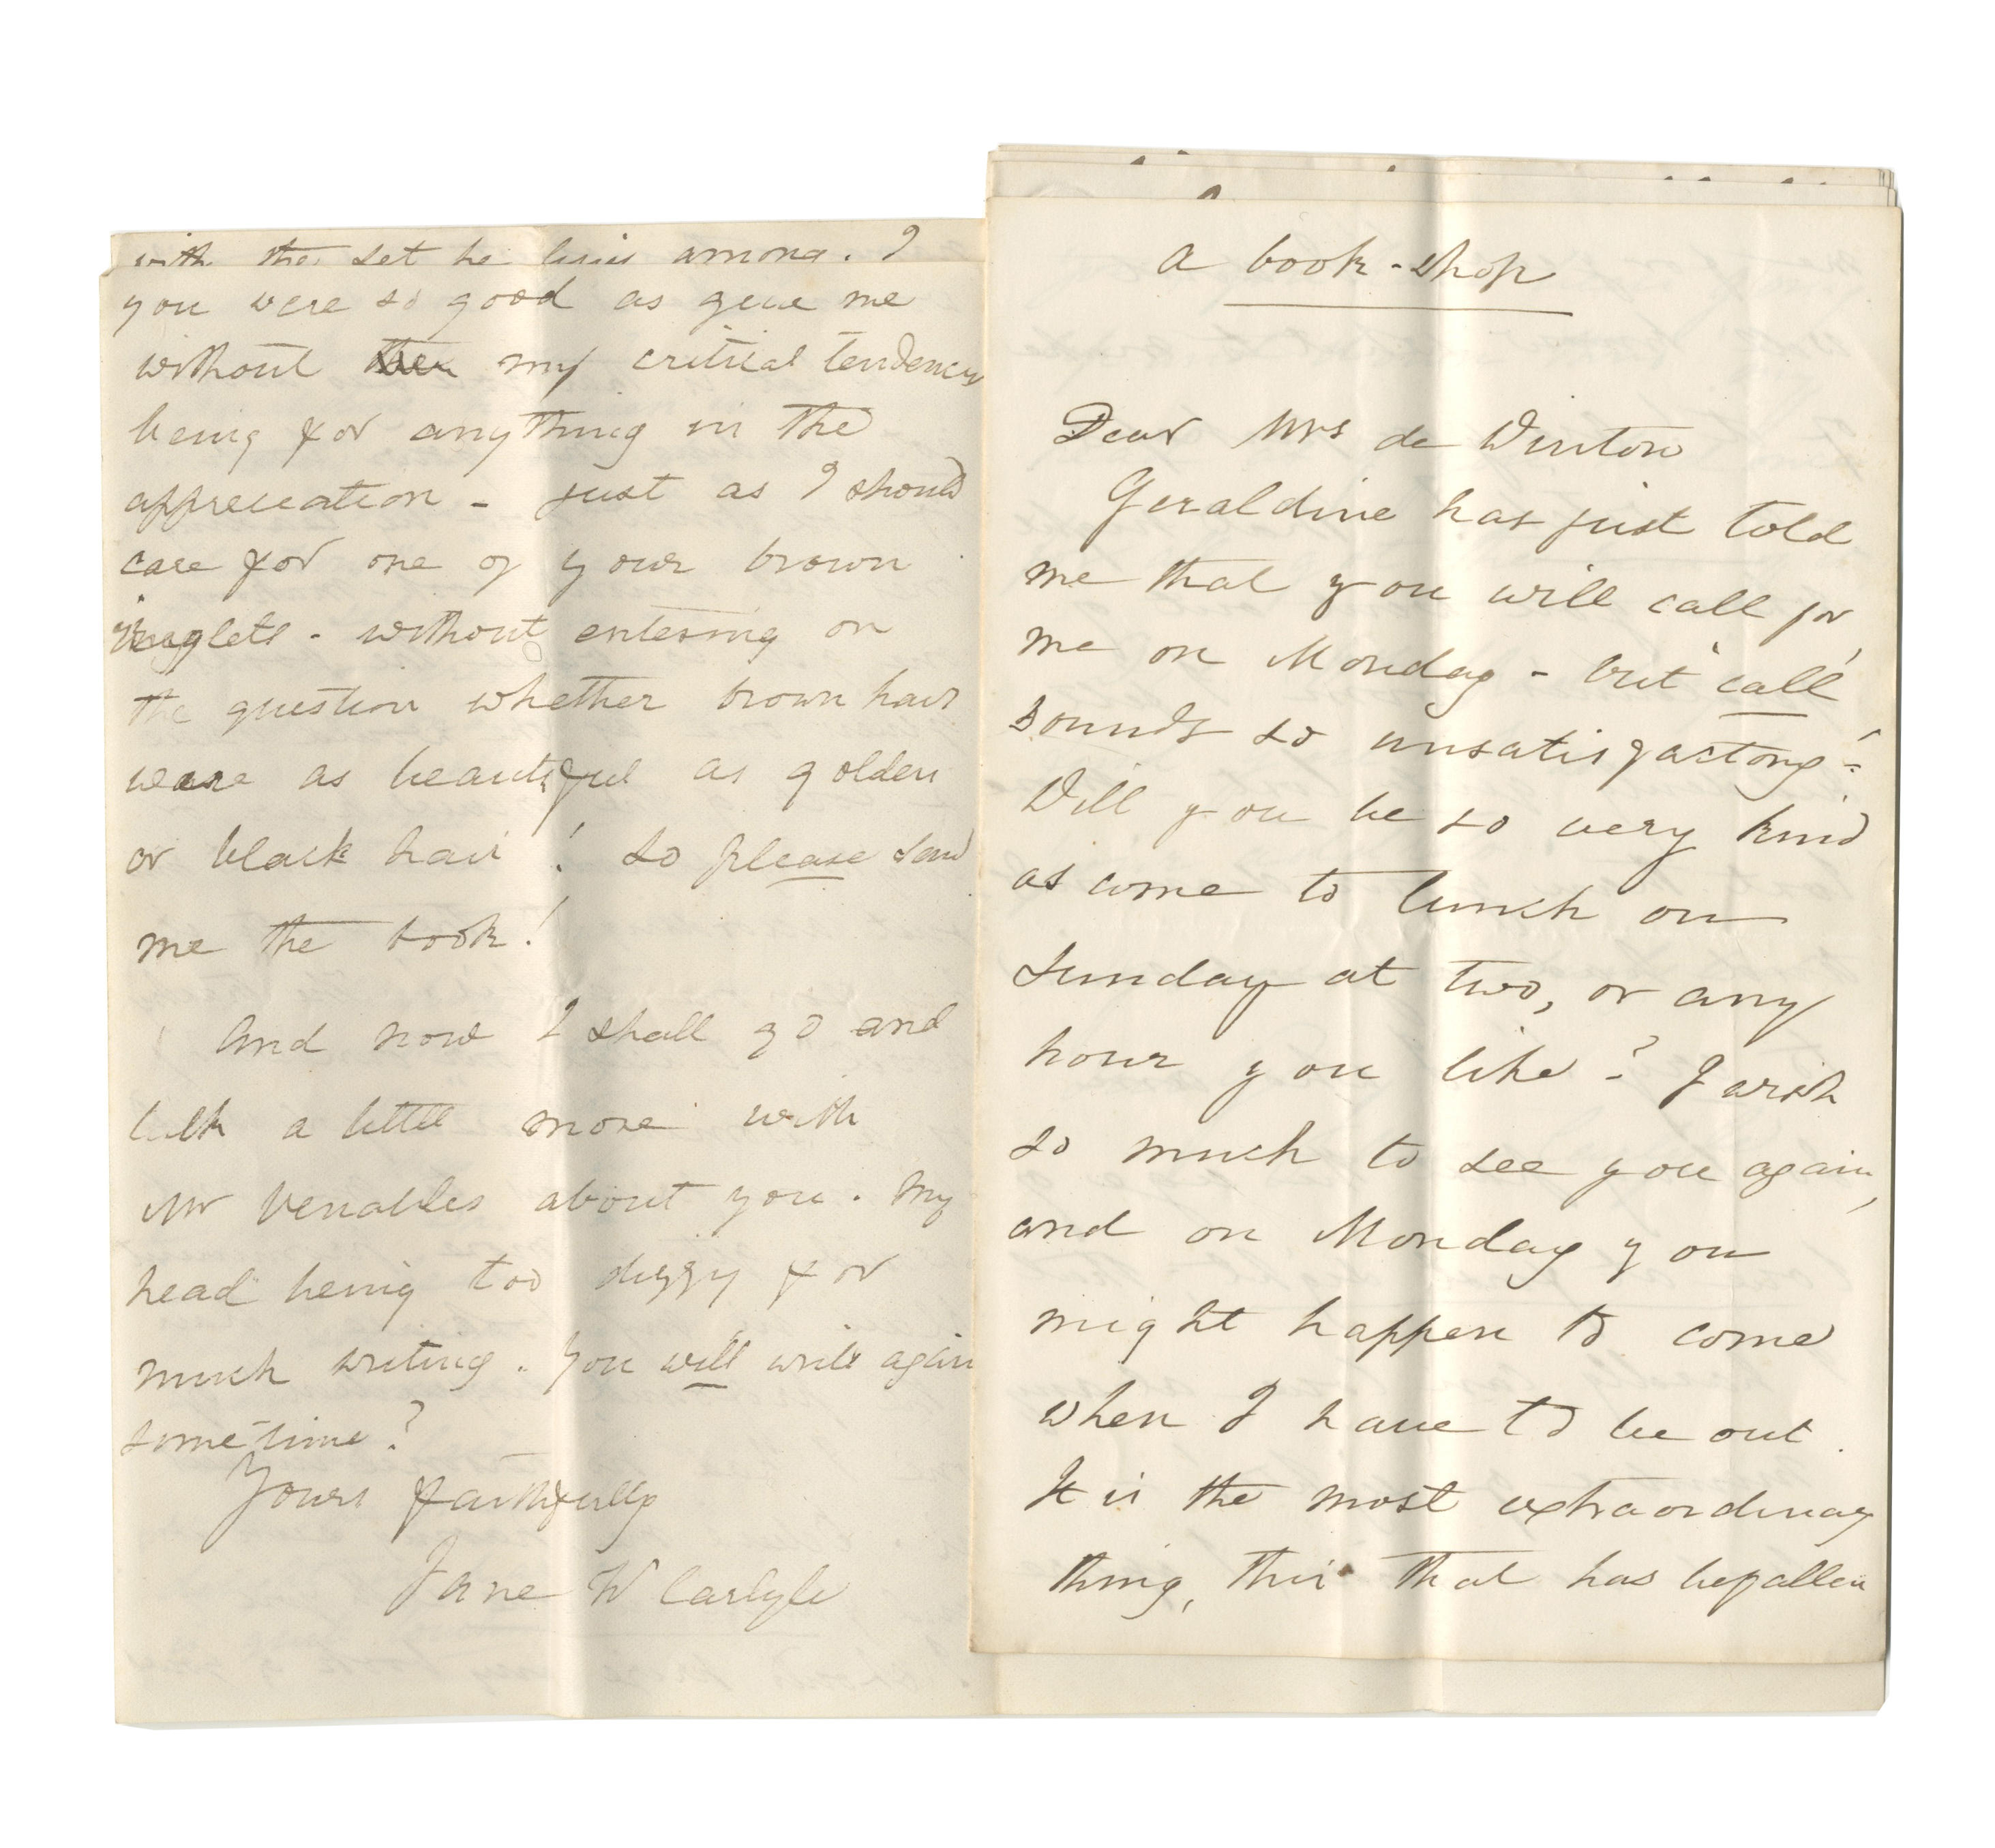 with the set he lives among. I
you were so good as give me
without my critical tendencies
being for anything in the
appreciation – just as I should
care for one of your brown
ringlets – without entering on
the question whether brown hair
were as beautiful as golden
or black hair! So please send
me the book!
And now I shall go and
talk a little more with
Mr Venables about you. My
head being too dizzy for
much writing. You will write again
sometime?
Yours faithfully
Jane W Carlyle
a book-shop
Dear Mrs de Winton
Geraldine has just told
me that you will call for
me on Monday – but 'call'
sounds so unsatisfactory!
Will you be so very kind
as come to lunch on
Sunday at two, or any
hour you like –? I wish
so much to see you again,
and on Monday you
might happen to come
when I have to be out.
It is the most extraordinary
thing, this that has befallen